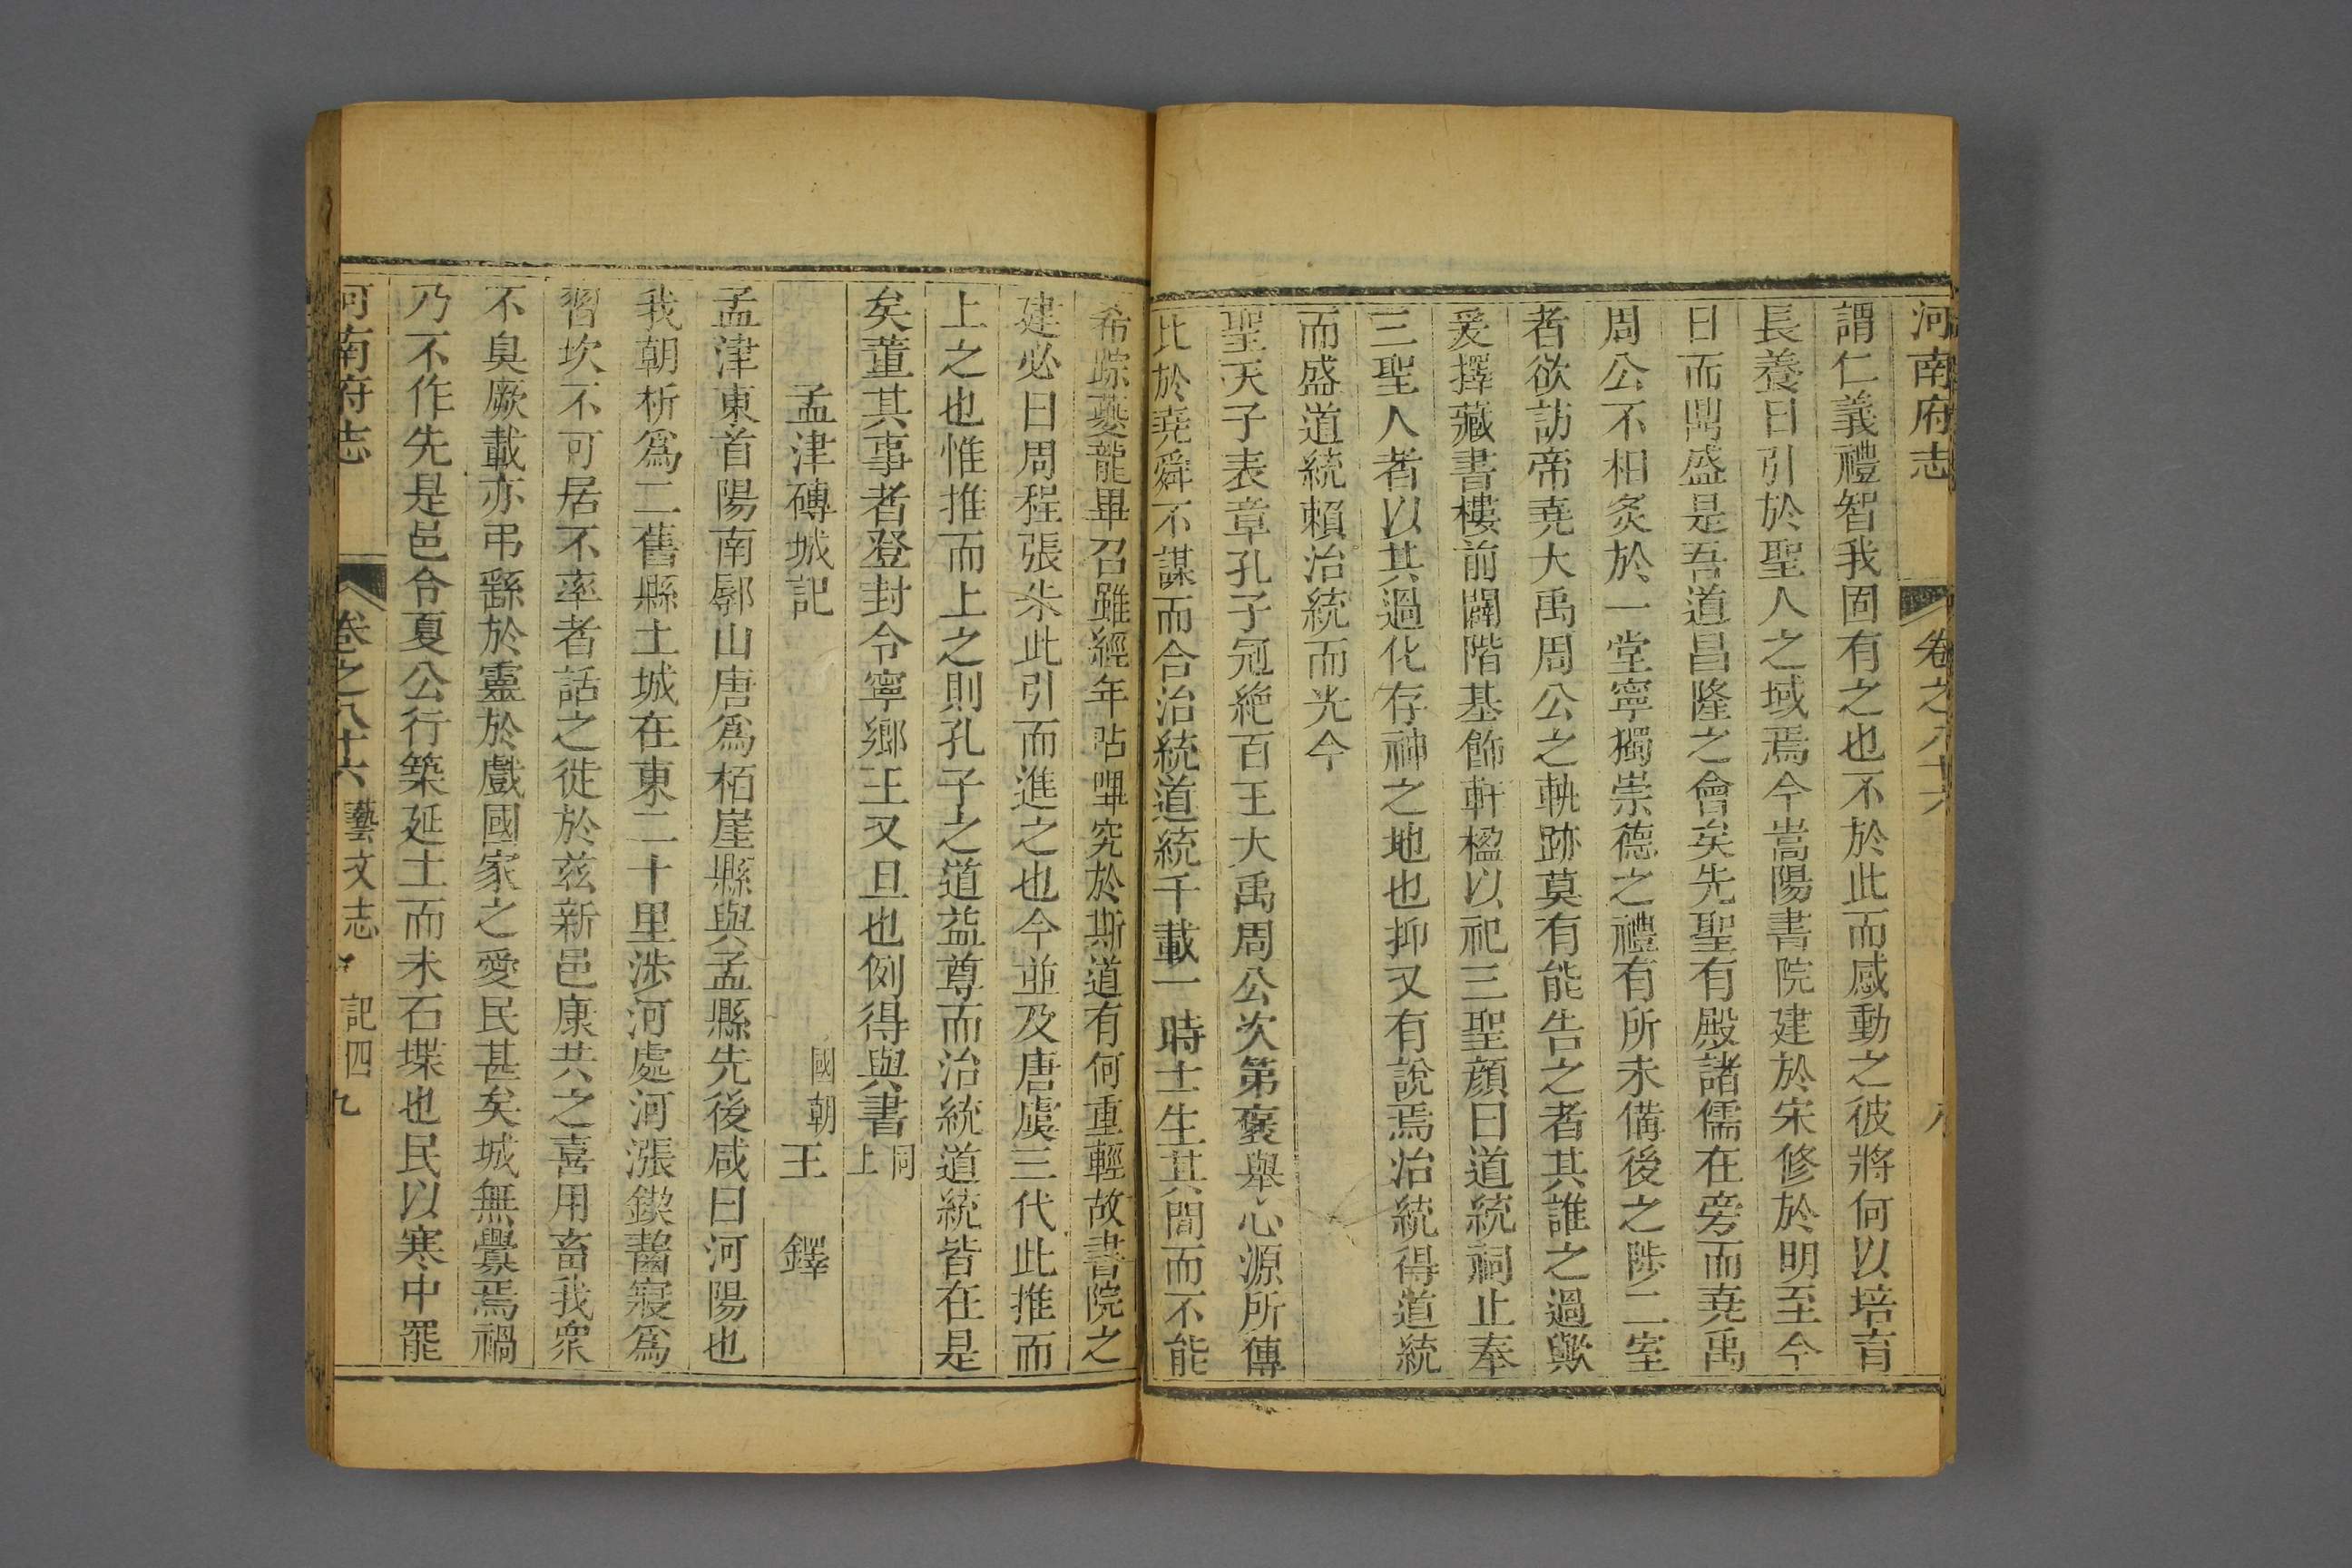 河南府志 卷之八十六 八
謂仁義禮智我固有之也不於此而感動之彼將何以培育
長養日引於聖人之域焉今嵩陽書院建於宋修於明至今
日而鼎盛是吾道昌隆之會矣先聖有殿諸儒在旁而堯禹
周公不相炙於一堂寧獨崇德之禮有所未備後之陟二室
者欲訪帝堯大禹周公之軼跡莫有能告之者其誰之過歟
爰擇藏書樓前闢階基飾軒楹以祀三聖顏曰道統祠止奉
三聖人者以其過化存神之地也抑又有說焉治統得道統
而盛道統賴治統而光今
聖天子表章孔子冠絶百王大禹周公次第褒舉心源所傳
比於堯舜不謀而合治統道統千載一時士生其間而不能
希踪夔龍畢召雖經年呫嗶究於斯道有何重輕故書院之
建必曰周程張朱此引而進之也今並及唐虞三代此推而
上之也惟推而上之則孔子之道益尊而治統道統皆在是
矣董其事者登封令寧鄉王又旦也例得與書同上
孟津磚城記 國朝王鐸
孟津東首陽南鄏山唐爲栢崖縣與孟縣先後咸曰河陽也
我朝析爲二舊縣土城在東二十里涉河處河漲鍥齧寢爲
習坎不可居不率者話之徙於兹新邑康共之喜用畜我衆
不臭厥載亦弔繇於靈於戲國家之愛民甚矣城無釁焉禍
乃不作先是邑令夏公行築延土而未石堞也民以寒中罷
河南府志 卷之八十六 藝文志 記四 九